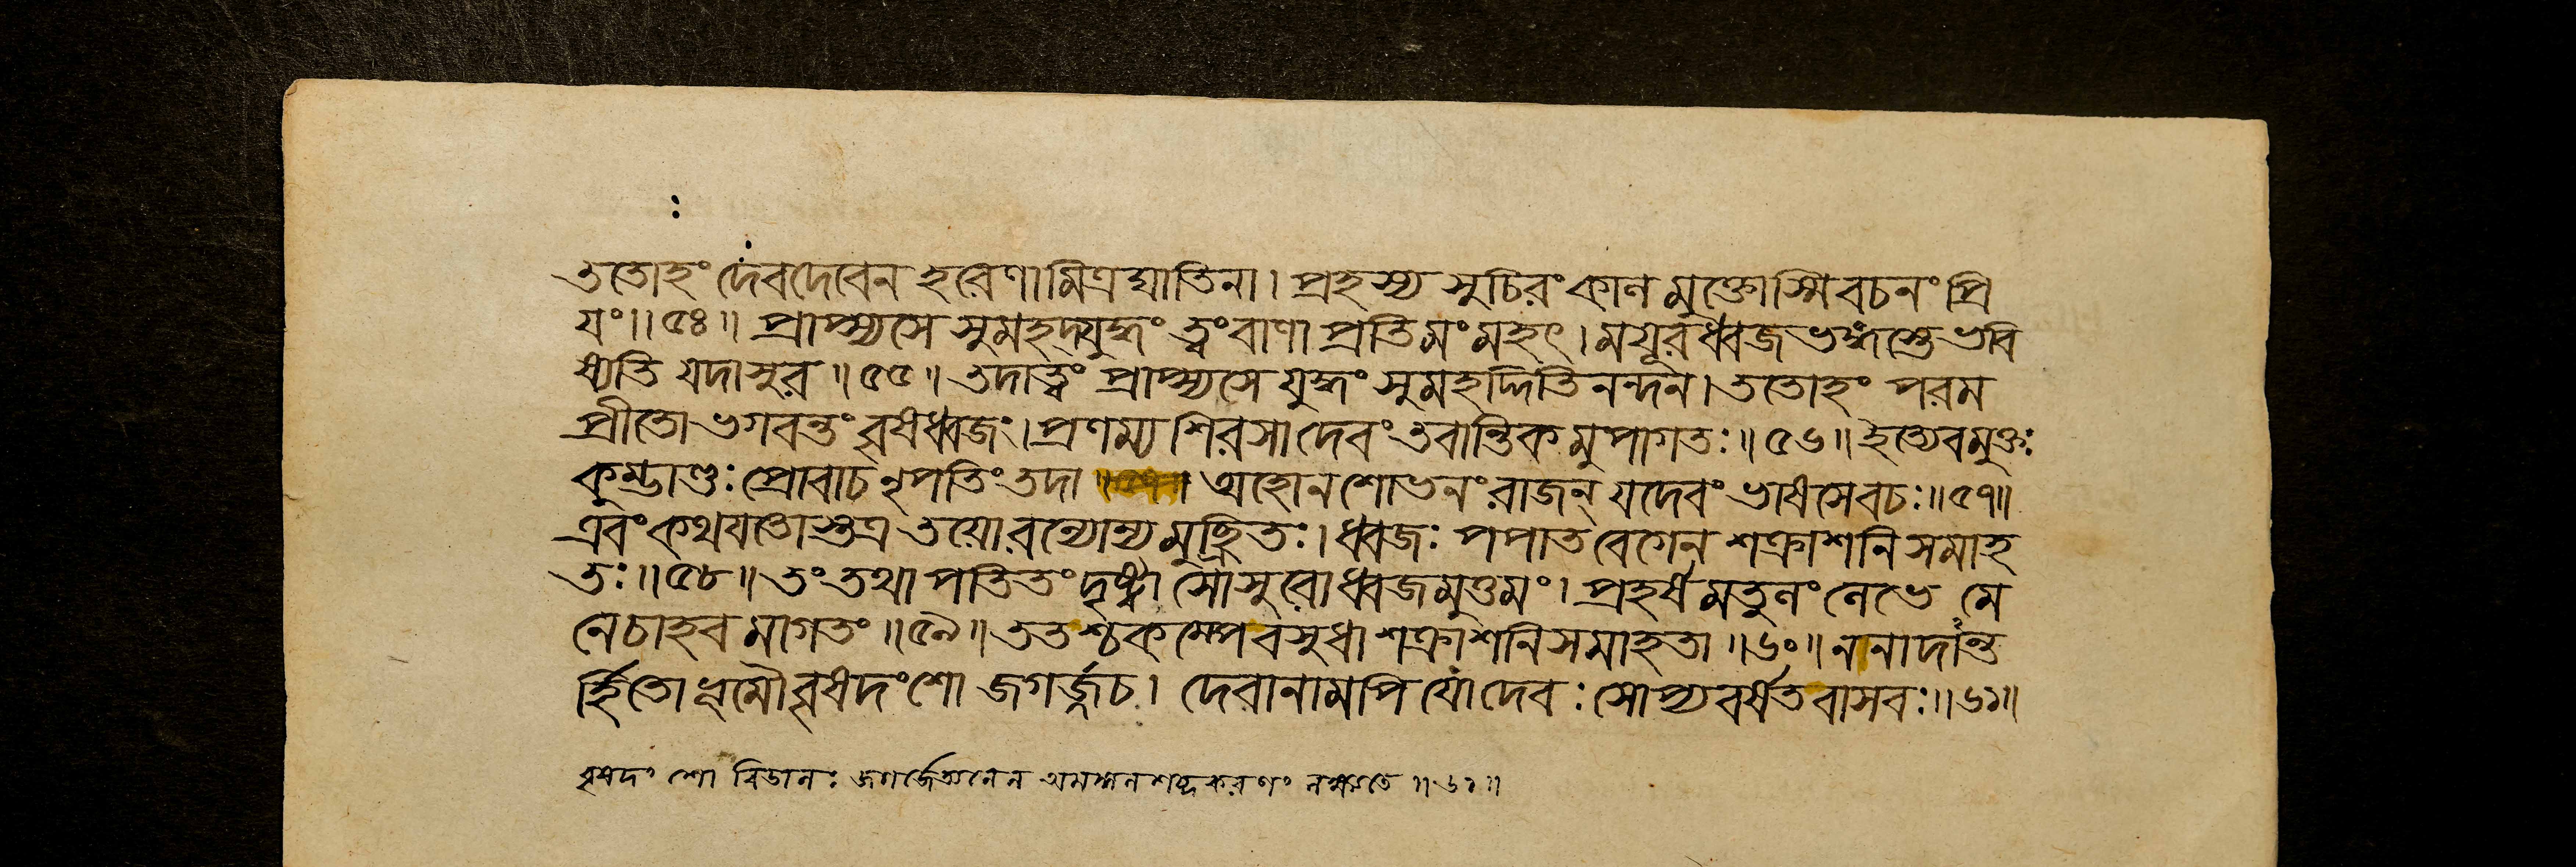 ততোহং দেবদেবেন হরেণামিত্রঘাতিনা। প্রহস্য সুচিরং কাল মুক্তোস্মিবচনং প্রি
যং॥৫৪॥ প্রাপ্স্যসে সুমহদ্যুদ্ধং ত্বং বাণা প্রতিমং মহৎ। ময়ূরধ্বজভঙ্গস্তে ভবি
ষ্যতি যদাসুর॥৫৫॥ তদাত্বং প্রাপ্স্যসে যুদ্ধং সুমহদ্দিতিনন্দন। ততোহং পরম
প্রীতো ভগবন্তং বৃষধ্বজং। প্রণম্য শিরসা দেবং তবান্তিক মুপাগতঃ॥৫৬॥ ইত্যেবমুক্তঃ
কুম্ভাণ্ডঃ প্রোবাচ নৃপতিং তদা। অহোন শোভনং রাজন্ যদেবং ভাষসেবচঃ॥৫৭॥
এবং কথযতোস্তত্র তয়োরন্যোন্য মুচ্ছ্রিতঃ। ধ্বজঃ পপাত বেগেন শক্রাশনি সমাহ
তঃ॥৫৮॥ তং তথা পতিতং দৃষ্ট্বা সোসুরো ধ্বজমুত্তমং। প্রহর্ষমতুলং লেভে মে
নেচাহবমাগতং॥৫৯॥ ততশ্চকম্পেবসুধা শক্রাশনিসমাহতা॥৬০॥ ননাদান্ত
র্হিতো ভূমৌ বৃষদংশো জগর্জ্জচ। দেবানামপি যো দেবঃ সোপ্যবর্ষত বাসবঃ॥৬১॥
বৃষদংশো বিডালঃ জগর্জেঅনেন শব্দকরণং লক্ষ্যতে॥৬১॥